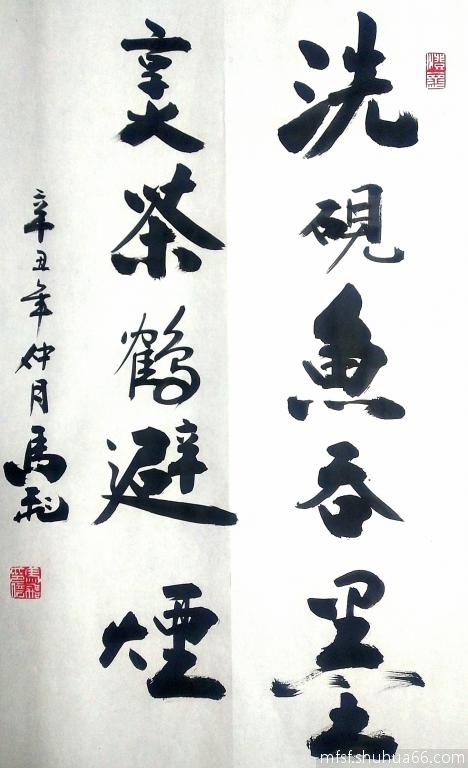 洗硯魚吞墨
烹茶鶴避煙
辛丑年仲月馬
mfsf.shuhua66.com